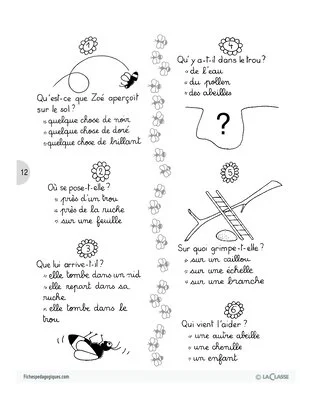 1
Qu'est-ce que Zoé aperçoit
sur le sol ?
quelque chose de noir
quelque chose de doré
quelque chose de brillant
12
2
Où se pose-t-elle ?
près d'un trou
près de la ruche
sur une feuille
3
Que lui arrive-t-il ?
elle tombe dans un nid
elle repart dans sa
ruche.
elle tombe dans le
trou
4
Qu'y a-t-il dans le trou ?
de l'eau
du pollen
des abeilles
?
5
Sur quoi grimpe-t-elle ?
sur un caillou
sur une échelle
sur une branche
6
Qui vient l'aider ?
une autre abeille
une chenille
un enfant
Fichespedagogiques.com
© LACLASSE